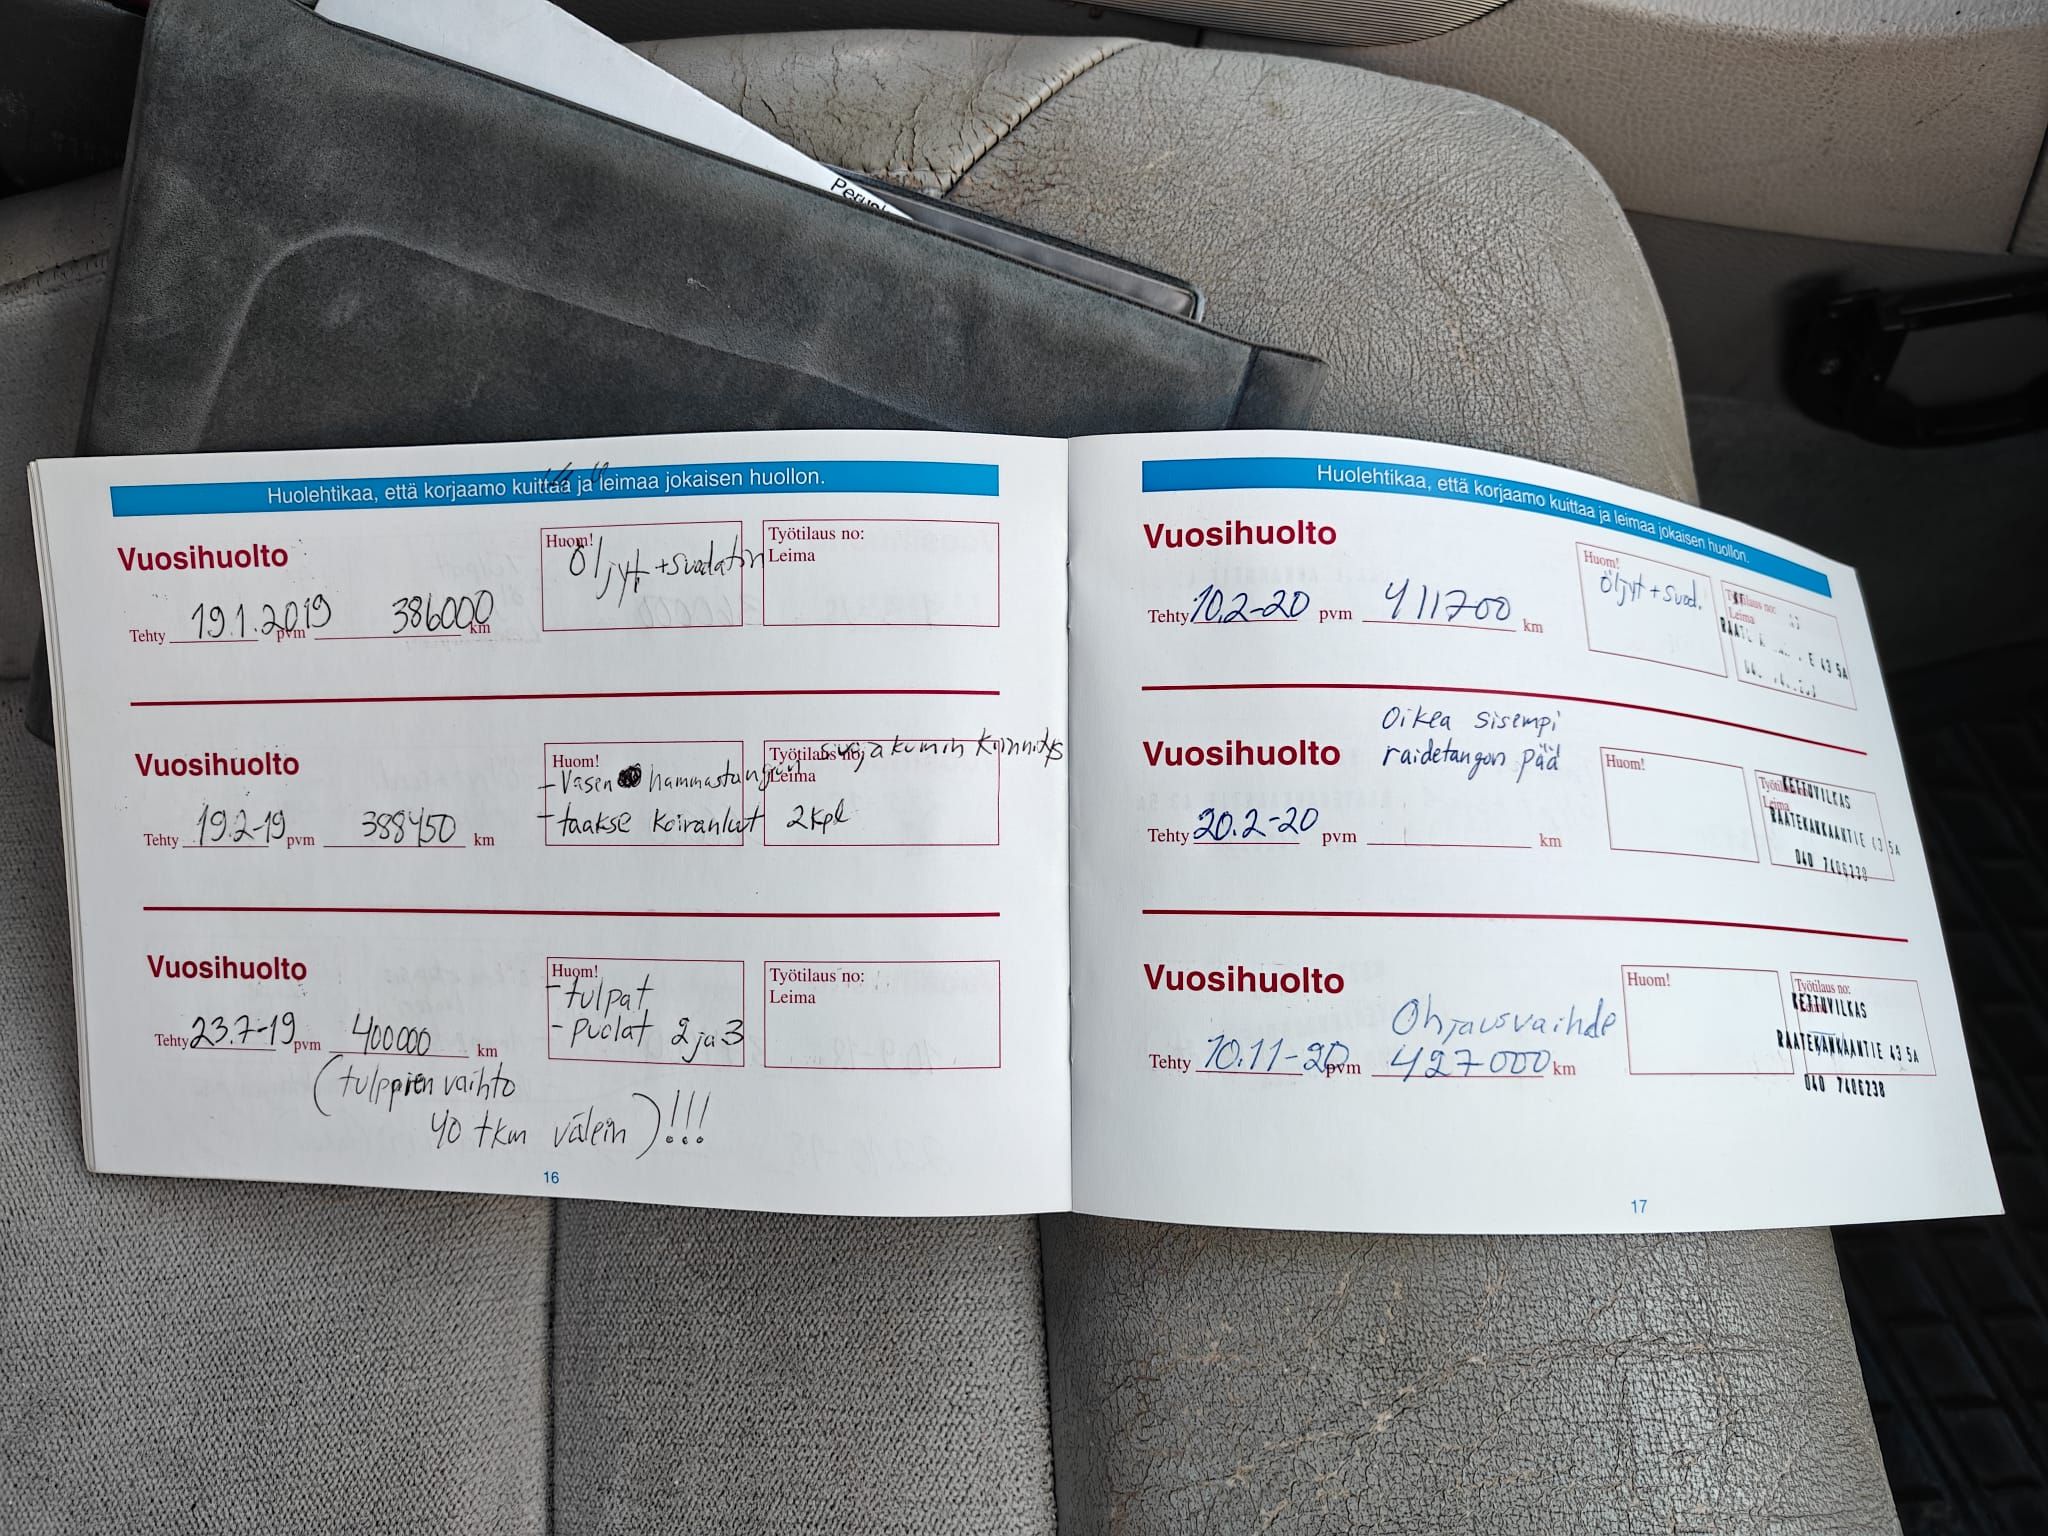 Huolehtikaa, että korjaamo kuittaa ja leimaa jokaisen huollon.
Vuosihuolto
Tehty 19.1.2019 pvm 386000 km
Huom!
Öljyt + suodatin
Työtilaus no:
Leima
Vuosihuolto
Tehty 19.2-19 pvm 388450 km
Huom!
- Vasen hammastangon suojakumin kiinnitys
- taakse koiranluut 2kpl
Työtilaus no:
Leima
Vuosihuolto
Tehty 23.7-19 pvm 400000 km
Huom!
- tulpat
- puolat 2 ja 3
Työtilaus no:
Leima
(tulppien vaihto
40 tkm välein)!!!
16
Huolehtikaa, että korjaamo kuittaa ja leimaa jokaisen huollon.
Vuosihuolto
Tehty 10.2-20 pvm 411700 km
Huom!
öljyt + suod.
Työtilaus no:
Leima
E 43 5A
Vuosihuolto
Oikea sisempi
raidetangon pää
Tehty 20.2-20 pvm km
Huom!
Leima
KETTUVILKAS
RAATEKANKAANTIE 43 5A
040 7406238
Vuosihuolto
Ohjausvaihde
Tehty 10.11-20 pvm 427000 km
Huom!
Työtilaus no:
KETTUVILKAS
RAATEKANKAANTIE 43 5A
040 7406238